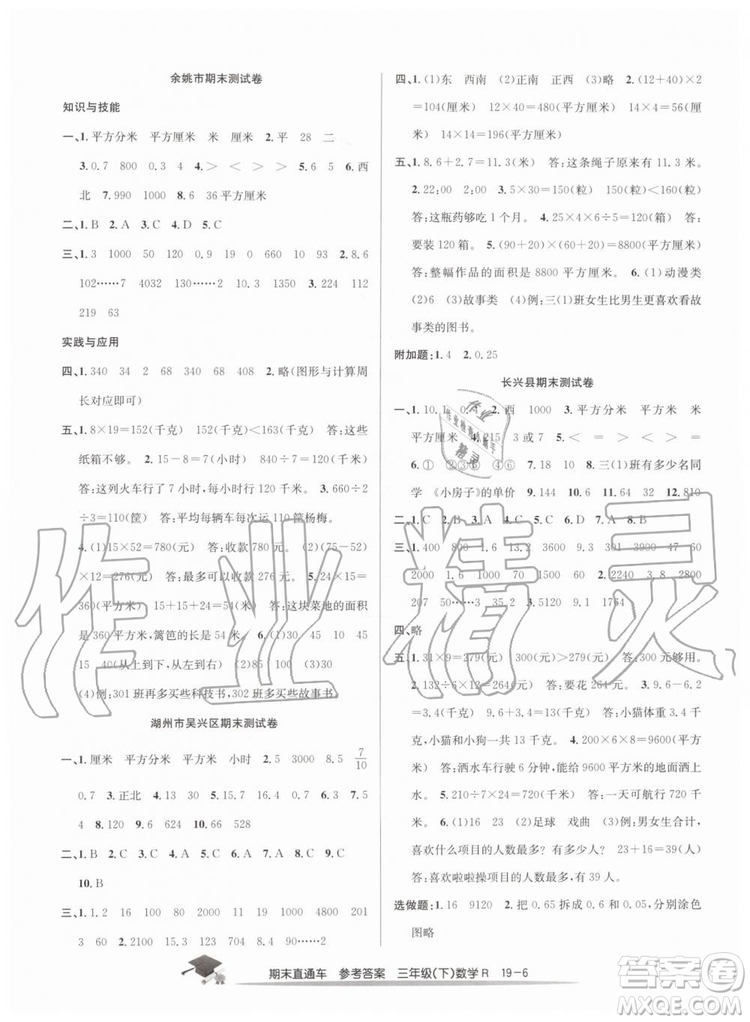 余姚市期末测试卷
知识与技能
一、1.平方分米 平方厘米 米 厘米 2.平 28 二
3.0.7 800 4.> < > > 5.6 5 6.西
北 7.990 1000 8.6 36平方厘米
二、1.B 2.A 3.C 4.D 5.C
三、1.3 1000 50 120 0.9 0 1000 90 2.8.6
102……7 4032 130……6 3.1350 224 212
219 63
实践与应用
四、1.340 34 2 68 340 408 2.略(图形与计算周
长对应即可)
五、1.8×19=152(千克) 152(千克)<163(千克) 答:这些
纸箱不够。 2.22-15=7(时) 840÷7=120(千米)
答:这列火车行了7小时,每小时行120千米。 3.660÷2
÷3=110(筐) 答:平均每辆车运110筐杨梅。
4.(1)15×52=780(元) 答:收款780元。 (2)(75-52)
×12=276(元) 答:收款276元。 5.24×15=
360(平方米) 15+15+24=54(米) 答:这块菜地的面积
是360平方米,篱笆的长度是54米。 6.(1)50 30 45 10
15 90 100 110 100 (2)85 65 110 100 (3)
例:301班再多买些科技书,302班多买些故事书。
湖州市吴兴区期末测试卷
一、1.厘米 平方分米 平方厘米 小时 2.5 3000 8.5 7/10
0.7 3.正北 4.< < > = 5.2 6.18 20 7.西
8.120 9.4 10.66 528
二、1.B 2.C 3.A 4.C 5.B 6.A 7.C 8.B 9.C
10.B
三、1.1.2 16 2700 2000 4800 0.9 300 0
四、1.(1)东 西南 (2)正南 正西 2.(42+10)×2
=104(厘米) 14×14=196(平方厘米) 14×4=
56(厘米) 14×14=196(平方厘米)
五、1.8.6+2.7=11.3(米) 答:这条绳子原来有11.3米。
2.22:00 21:00 3.5×30=150(粒) 150(粒)<160(粒)
答:这瓶药够吃1个月。 4.25×4×6÷5=120(箱) 答:
要装120箱。 5.(90+20)×(60+20)=8800(平方厘米)
答:整幅作品的面积是8800平方厘米。 6.(1)动漫类
(2)6 (3)故事类 例:三(1)班女生比男生更喜欢看故
事类的图书。
附加题:1.4 2.0.25
长兴县期末测试卷
一、1.10.1 0.4 2.西 1000 3.平方分米 米
平方厘米 4.215 3或7 5.> > < <
6.① ②③⑥ ④⑥ 7.6 8.10 9.三(1)班有多少名同
学 《小房子》的单价 10.6.5 11.36 12.810
二、1.C 2.B 3.B 4.A 5.C
三、1.4000 900 1.6 13.2 3600 9.3 0 1 60
2000 1000 1.8 2.3901 50……4 3000 2666
207 50……6 3.5120 9.1 1764
四、略
五、1.31×9=279(元) 300(元)>279(元) 答:300元够用。
2.132÷2×9=594(元) 答:要花594元。 3.6.8÷2
=3.4(千克) 答:小猫重3.4千克,小猫和小狗一共重
答:洒水车行驶6分钟,能给
5.17×5×6=510(千克) 答:一天可航行
六、(1)9 16 (2)足球 戏曲 (3)例:男女生合计,
喜欢什么项目的人数最多? 23+16=39(人)
答:喜欢啦啦操项目的人数最多,有39人。
选做题:1.16 9120 2.把0.65改成0.05,分别涂色
图略
期末直通车 参考答案 三年级(下)数学R 19-6
作业精灵